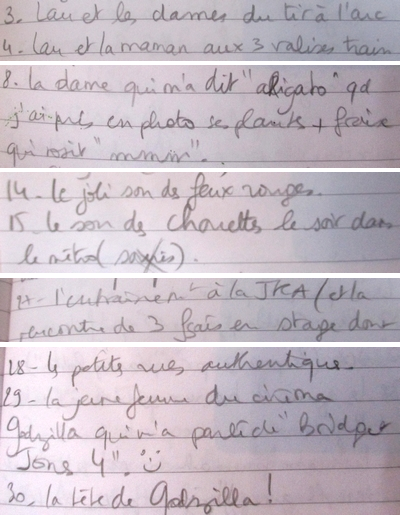 3. Lau et les dames du tir à l'arc
4. Lau et la maman aux 3 valises train
8. la dame qui m'a dit "aligato" qd
j'ai pris en photo ses plants + fraise
qui rosit "mmm".
14 - le joli son des feux rouges.
15 le son des chouettes le soir dans
le métro (
27 - l'entraînemt à la JKA (et la
rencontre de 3 fçais en stage dont
28 - les petites rues authentiques.
29 - la jeune femme du cinéma
Godzilla qui m'a parlé de "Bridget
Jons 4".
30. la tête de Godzilla !